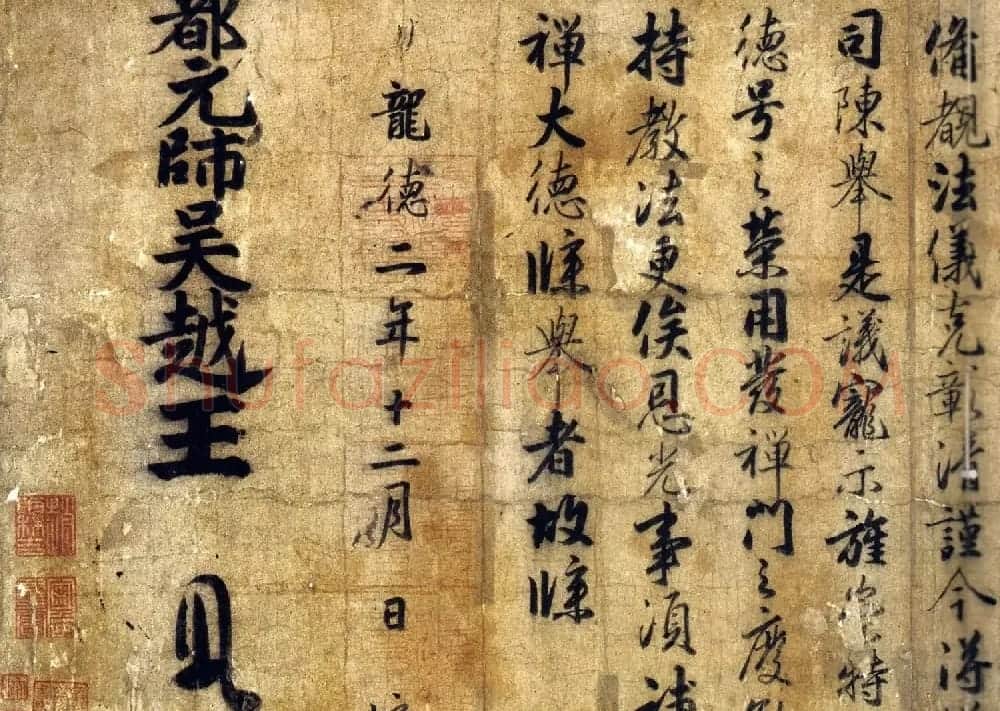 備觀法儀克彰清謹今得
司陳舉是議寵示旌崇特
德号之榮用發禪門之慶
持教法更俟恩光事須補
禪大德牒舉者故牒
龍德二年十二月日
都元帥吴越王
Shutaziliao.COM